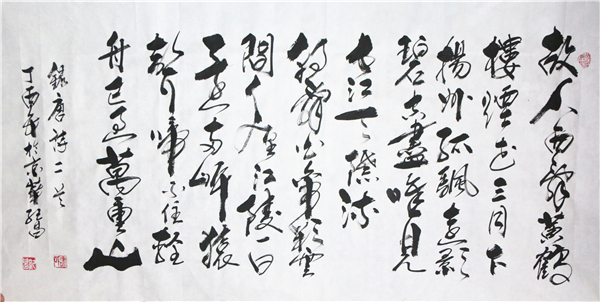 故人西辭黄鶴
樓煙花三月下
揚州孤颿遠影
碧空盡唯見
長江天際流
朝辭白帝彩雲
間千里江陵一日
還兩岸猿
聲啼不住輕
舟已過萬重山
錄唐詩二首
丁酉年於京華